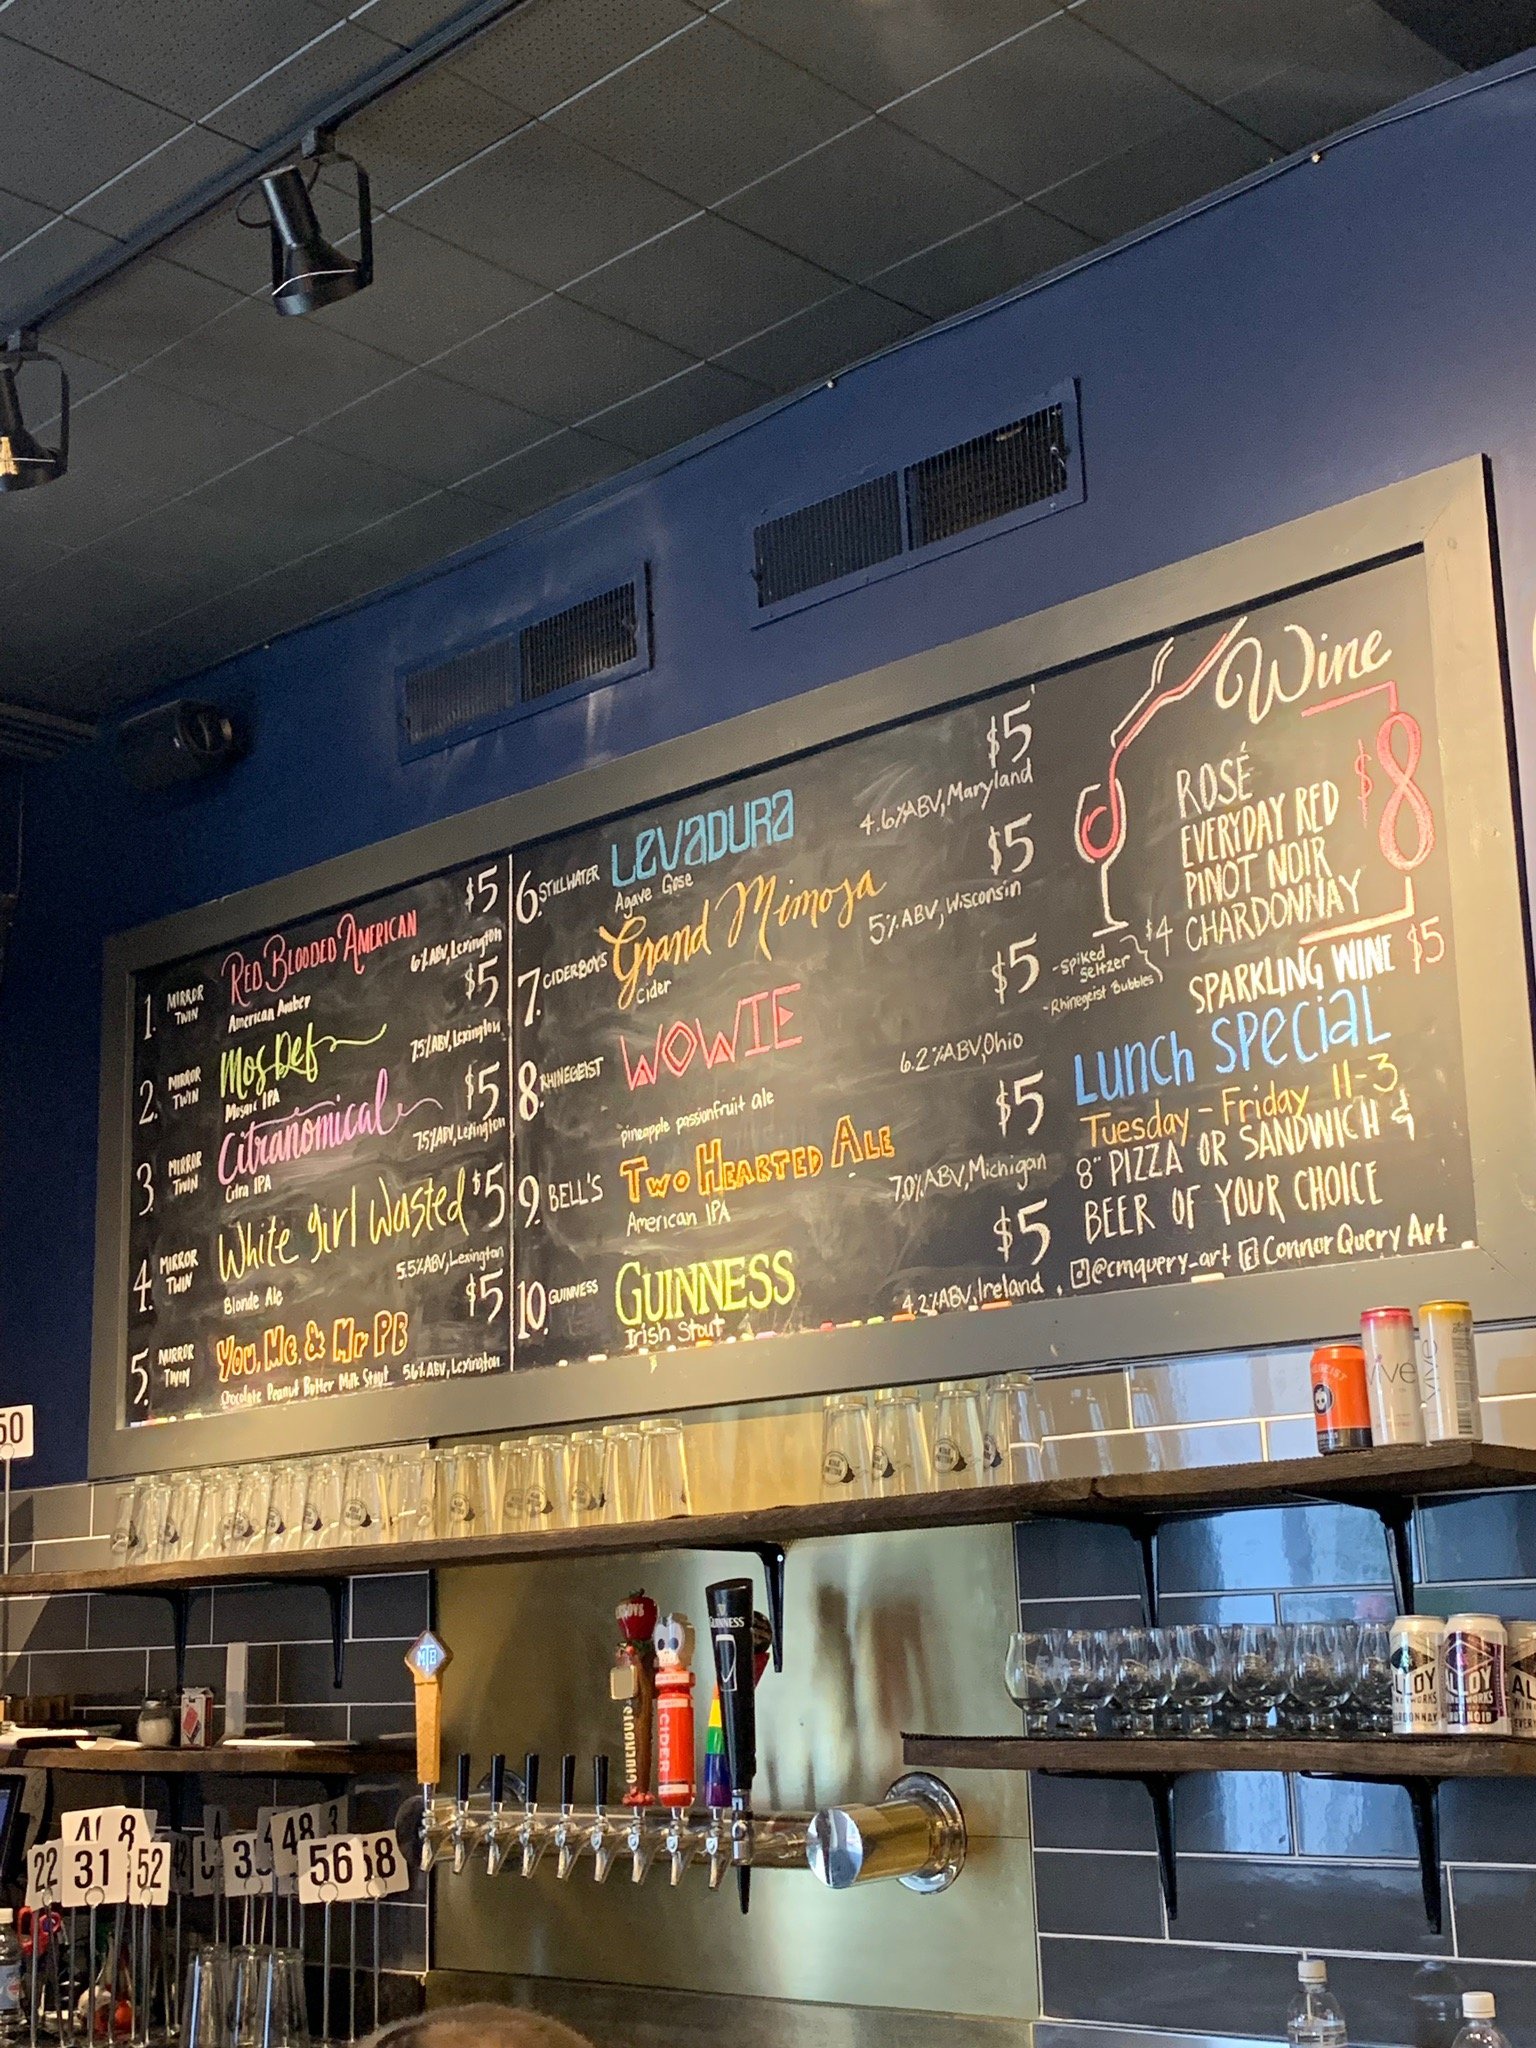 1. MIRROR TWIN RED BLOODED AMERICAN $5
American Amber 6% ABV, Lexington
2. MIRROR TWIN Mos Def $5
Mosaic IPA 7.5% ABV, Lexington
3. MIRROR TWIN Citranomical $5
Citra IPA 7.5% ABV, Lexington
4. MIRROR TWIN White Girl Wasted $5
Blonde Ale 5.5% ABV, Lexington
5. MIRROR TWIN You, Me, & Mr PB $5
Chocolate Peanut Butter Milk Stout 5.6% ABV, Lexington
6. STILLWATER LEVADURA $5
Agave Gose 4.6% ABV, Maryland
7. CIDERBOYS Grand Mimosa $5
Cider 5% ABV, Wisconsin
8. RHINEGEIST WOWIE $5
pineapple passionfruit ale 6.2% ABV, Ohio
9. BELL'S TWO HEARTED ALE $5
American IPA 7.0% ABV, Michigan
10. GUINNESS GUINNESS $5
Irish Stout 4.2% ABV, Ireland
Wine
ROSÉ
EVERYDAY RED
PINOT NOIR
CHARDONNAY
$8
SPARKLING WINE $5
- Spiked Seltzer
- Rhinegeist Bubbles
$4
LUNCH SPECIAL
Tuesday - Friday 11-3
8" PIZZA OR SANDWICH &
BEER OF YOUR CHOICE
@cmquery_art Connor Query Art
vive
vive
GUINNESS
CIDERBOYS
CIDER
ALLOY
ALLOY
50
22
31
8
52
48
3
56
58